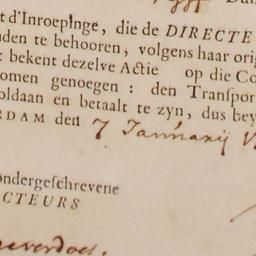 t d'Inroepinge, die de DIRECTE
nden te behooren, volgens haar orig
t bekent dezelve Actie op die Co
omen genoegen : den Transpor
oldaan en betaalt te zyn, dus bey
RDAM den 7 Jannarij
ondergeschrevene
CTEURS